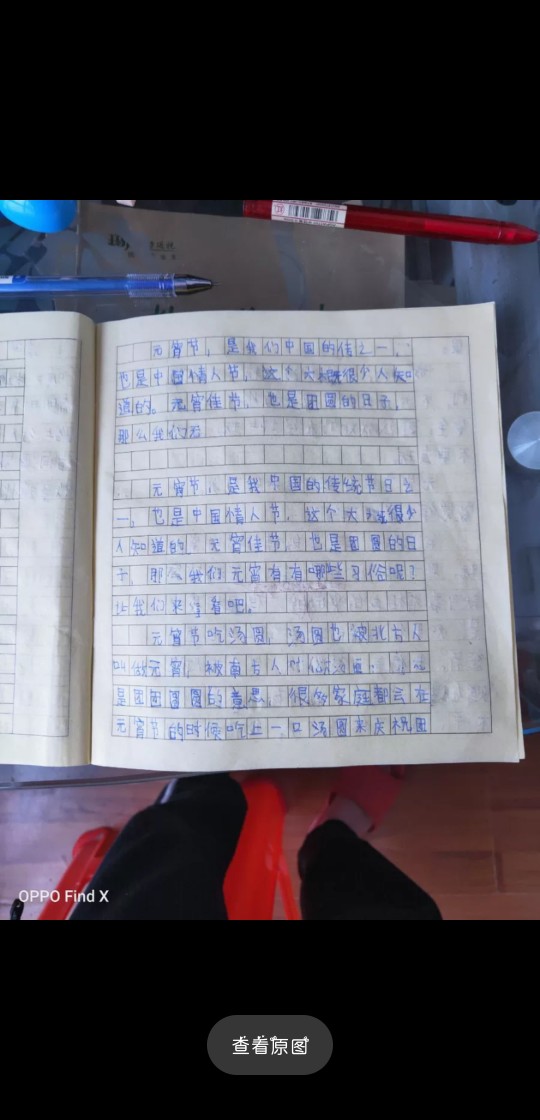 元宵节，是我们中国的传之一，
也是中国情人节，这个大概很少人知
道的。元宵佳节，也是团圆的日子，
那么我们元
元宵节，是我中国的传统节日之
一。也是中国情人节，这个大 很少
人知道的，元宵佳节，也是团圆的日
子，那么我们元宵有有哪些习俗呢？
让我们来 看吧。
元宵节吃汤圆，汤圆也被北方人
叫做元宵，被南方人叫做汤圆，
是团团圆圆的意思，很多家庭都会在
元宵节的时候吃上一口汤圆来庆祝团
OPPO Find X
查看原图